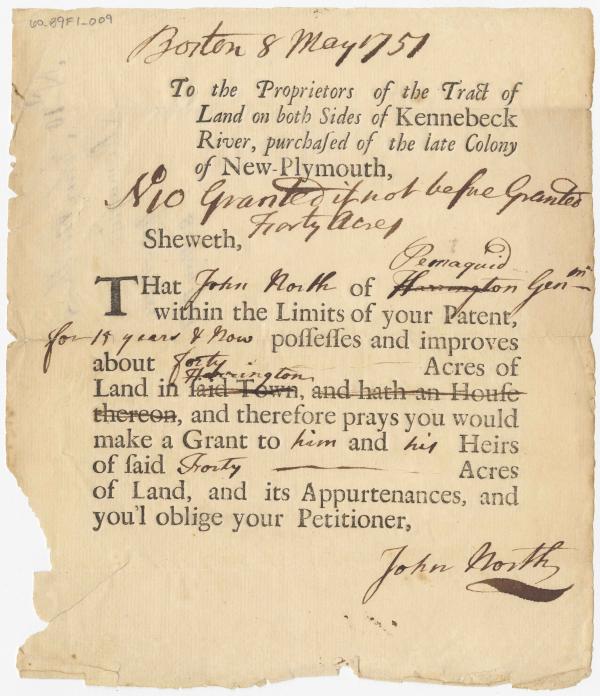 60-89F1-009
Boston 8 May 1751
To the Proprietors of the Tract of
Land on both Sides of Kennebeck
River, purchaſed of the late Colony
of New-Plymouth,
No 10 Granted if not befue Granted
Forty Acres
Sheweth,
Pemaquid
THat John North of Harrington Genm
within the Limits of your Patent,
for 18 years & Now poſſeſſes and improves
about forty Acres of
Harrington
Land in ſaid Town, and hath an Houſe
thereon, and therefore prays you would
make a Grant to him and his Heirs
of ſaid Forty Acres
of Land, and its Appurtenances, and
you'l oblige your Petitioner,
John North